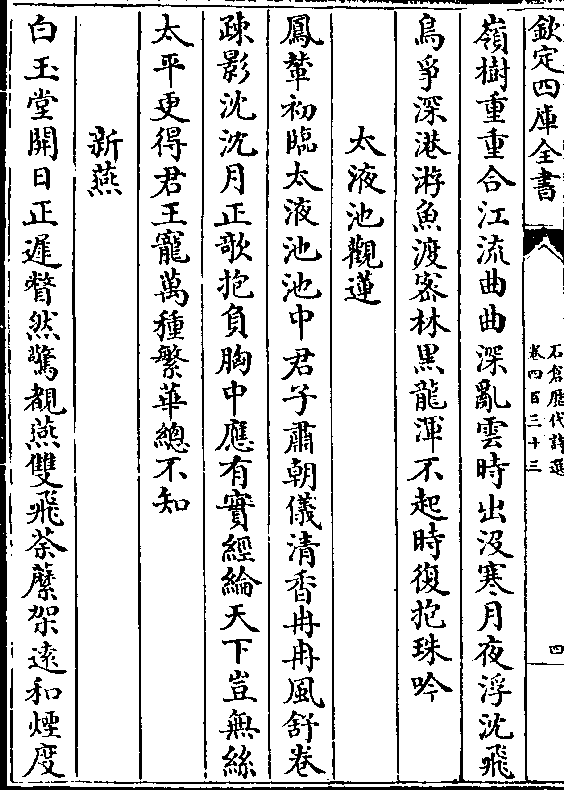 欽定四庫全書
石倉歷代詩選
卷四百三十三
四
嶺樹重重合江流曲曲深亂雲時出没寒月夜浮沈飛
鳥爭深港游魚渡密林黑龍渾不起時復抱珠吟
太液池觀蓮
鳳輦初臨太液池池中君子肅朝儀清香冉冉風舒卷
疎影沈沈月正欹抱負胸中應有實經綸天下豈無絲
太平更得君王寵萬種繁華總不知
新燕
白玉堂開日正遲瞥然驚覩燕雙飛荼䕷架遠和煙度